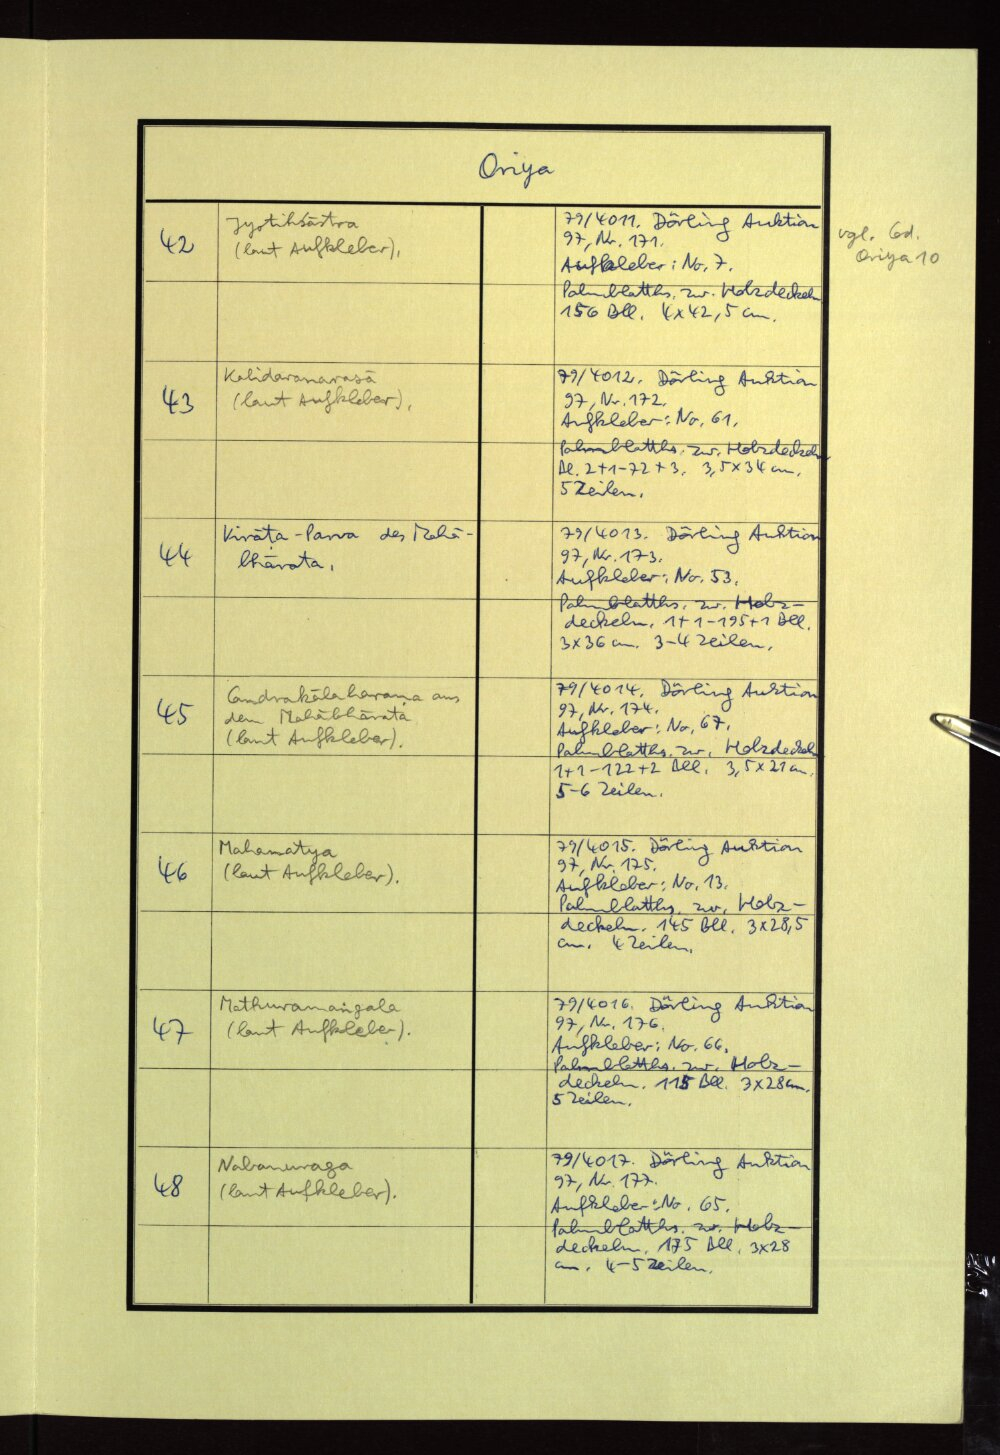 Oriya
42
Jyotiḥśāstra
(laut Aufkleber).
79/4011. Dörling Auktion
97, Nr. 171.
Aufkleber: No. 7.
Palmblatths. zw. Holzdeckeln
156 Bll. 4x42,5 cm.
vgl. Cod.
Oriya 10
43
(laut Aufkleber).
79/4012. Dörling Auktion
97, Nr. 172.
Aufkleber: No. 61.
Palmblatths. zw. Holzdeckeln
Bl. 2+1-72+3. 3,5x34 cm.
5 Zeilen.
44
Virāṭa-Parva des Mahā-
bhārata.
79/4013. Dörling Auktion
97, Nr. 173.
Aufkleber: No. 53.
Palmblatths. zw. Holz-
deckeln. 1+1-195+1 Bll.
3x36 cm. 3-4 Zeilen.
45
Candrakālaharaṇa aus
dem Mahābhārata
(laut Aufkleber).
79/4014. Dörling Auktion
97, Nr. 174.
Aufkleber: No. 67.
Palmblatths. zw. Holzdeckeln
1+1-122+2 Bll. 3,5x21 cm.
5-6 Zeilen.
46
Mahamatya
(laut Aufkleber).
79/4015. Dörling Auktion
97, Nr. 175.
Aufkleber: No. 13.
Palmblatths. zw. Holz-
deckeln. 145 Bll. 3x28,5
cm. 4 Zeilen.
47
Mathuramaṅgala
(laut Aufkleber).
79/4016. Dörling Auktion
97, Nr. 176.
Aufkleber: No. 66.
Palmblatths. zw. Holz-
deckeln. 115 Bll. 3x28 cm.
5 Zeilen.
48
Nabanuraga
(laut Aufkleber).
79/4017. Dörling Auktion
97, Nr. 177.
Aufkleber: No. 65.
Palmblatths. zw. Holz-
deckeln. 175 Bll. 3x28
cm. 4-5 Zeilen.